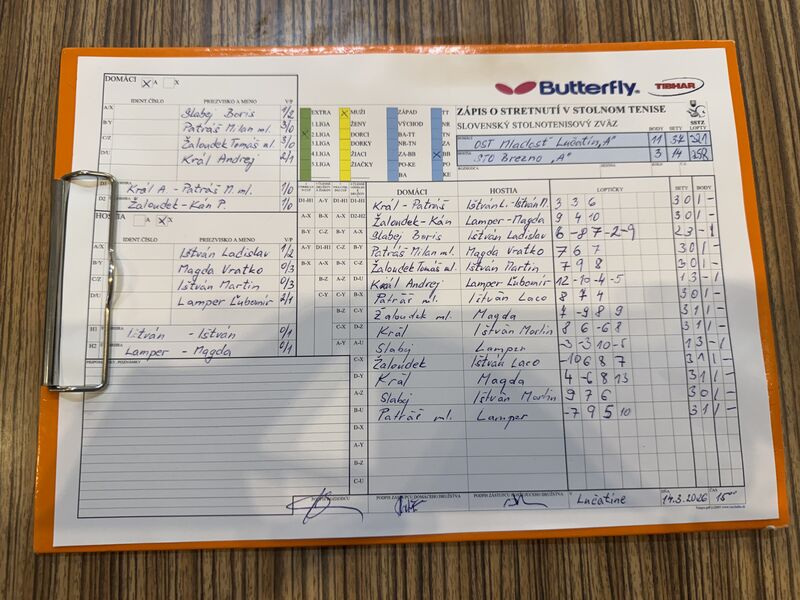 DOMÁCI A X
IDENT. ČÍSLO PRIEZVISKO A MENO V/P
A/X Slabej Boris 1/2
B/Y Patráš Milan ml. 3/0
C/Z Žaloudek Tomáš ml. 3/0
D/U Král Andrej 2/1
D1 Král A - Patráš M. ml. 1/0
D2 Žaloudek - Kán P. 1/0
HOSTIA A X
IDENT. ČÍSLO PRIEZVISKO A MENO V/P
A/X Ištván Ladislav 1/2
B/Y Magda Vratko 0/3
C/Z Ištván Martin 0/3
D/U Lamper Ľubomír 2/1
H1 Ištván - Ištván 0/1
H2 Lamper - Magda 0/1
EXTRA MUŽI ZÁPAD TT
1.LIGA ŽENY VÝCHOD NR
2.LIGA DORCI BA-TT ZA
3.LIGA DORKY NR-TN BB
4.LIGA ŽIACI ZA-BB
5.LIGA ŽIAČKY PO-KE
Butterfly
TIBHAR
ZÁPIS O STRETNUTÍ V STOLNOM TENISE
SLOVENSKÝ STOLNOTENISOVÝ ZVÄZ
SSTZ
BODY SETY LOPTY
OŠT Mladosť Lučatín "A" 11 37
STO Brezno "A" 3 14
DOMÁCI HOSTIA LOPTIČKY SETY BODY
Král - Patráš Ištván L. - Ištván M. 3 3 6 3 0 1 -
Žaloudek - Kán Lamper - Magda 9 4 10 3 0 1 -
Slabej Boris Ištván Ladislav 6 -8 7 -2 -9 2 3 - 1
Patráš Milan ml. Magda Vratko 7 6 7 3 0 1 -
Žaloudek Tomáš ml. Ištván Martin 7 9 8 3 0 1 -
Král Andrej Lamper Ľubomír 12 -10 -4 -5 1 3 - 1
Patráš ml. Ištván Laco 8 7 4 3 0 1 -
Žaloudek ml. Magda 7 -9 8 9 3 1 1 -
Král Ištván Martin 8 6 -6 8 3 1 1 -
Slabej Lamper 1 3 - 1
Žaloudek Ištván Laco -10 6 8 7 3 1 1 -
Král Magda 4 -6 8 13 3 1 1 -
Slabej Ištván Martin 9 7 6 3 0 1 -
Patráš ml. Lamper -7 9 5 10 3 1 1 -
PODPIS ROZHODCU PODPIS ZÁSTUPCU DOMÁCEHO DRUŽSTVA PODPIS ZÁSTUPCU HOSŤUJÚCEHO DRUŽSTVA V Lučatíne DŇA 14.3.2026 ČAS 15⁰⁰